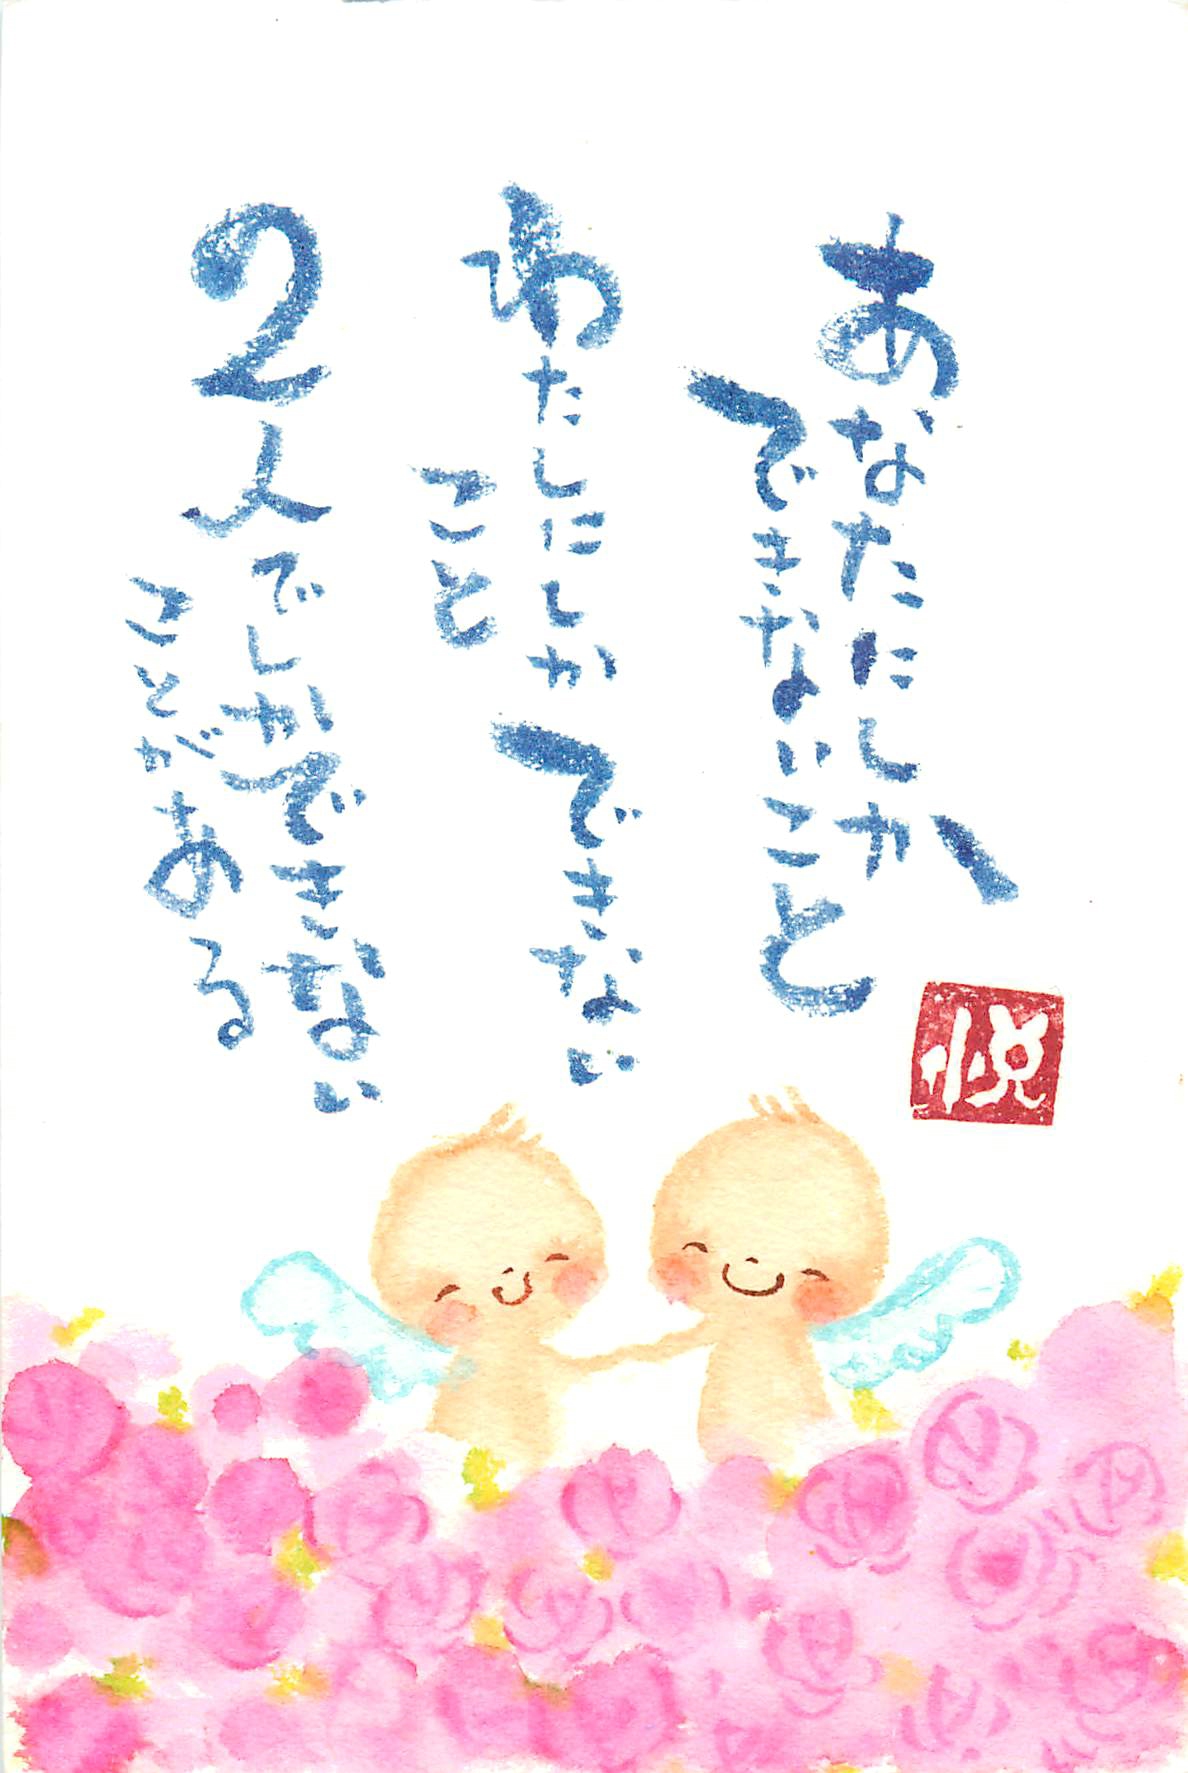 あなたにしか
できないこと
わたしにしかできない
こと
2人でしかできない
ことがある
悦